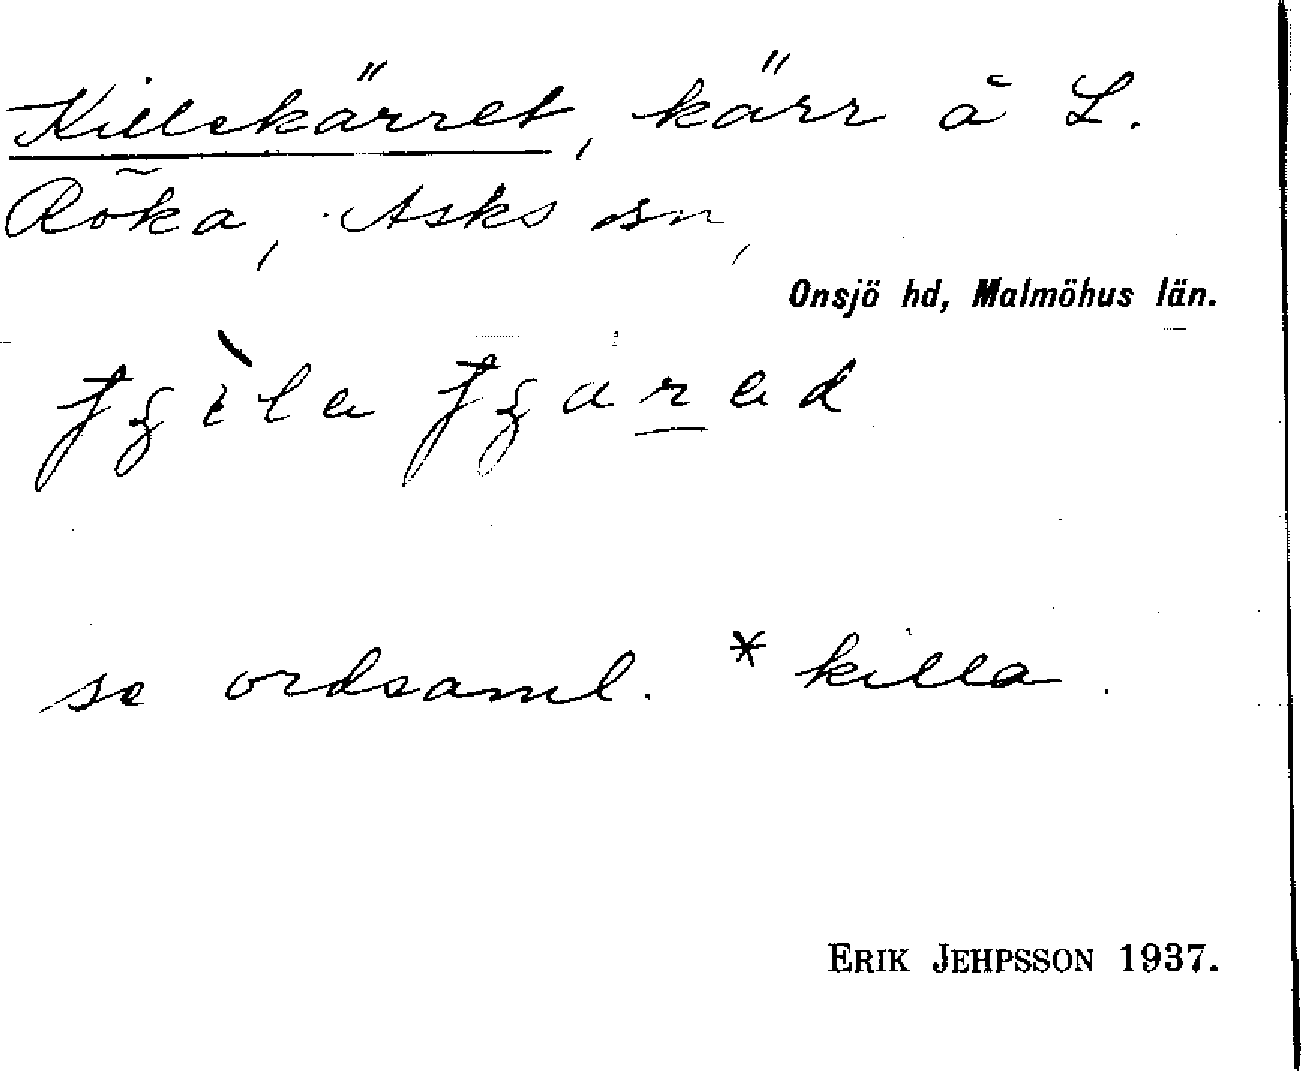 Killekärret, kärr å L.
Röka, Asks sn,
Onsjö hd, Malmöhus län.
se ordsaml. * killa.
ERIK JEHPSSON 1937.